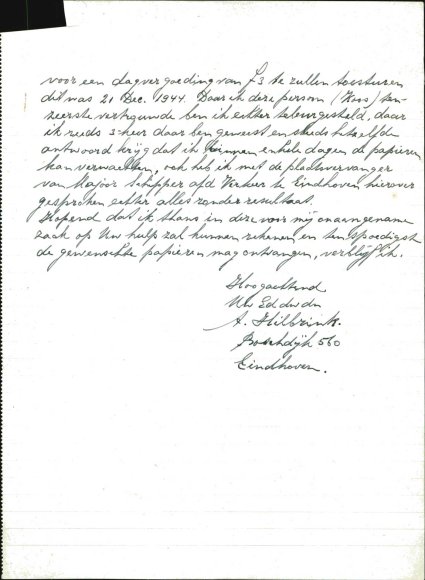 voor een dagvergoeding van f3 te zullen toesturen
dit was 21 Dec. 1944. Daar ik deze persoon (Koos) ten-
zeerste vertrouwde ben ik echter teleurgesteld, daar
ik reeds 3 keer daar ben geweest en steeds hetzelfde
antwoord krijg dat ik binnen enkele dagen de papieren
kan verwachten, ook heb ik met de plaatsvervanger
van Majoor Schipper afd Verkeer te Eindhoven hierover
gesproken echter alles zonder resultaat.
Hopend dat ik thans in deze voor mij onaangename
zaak op Uw hulp zal kunnen rekenen en ten spoedigst
de gewenschte papieren mag ontvangen, verblijf ik.
Hoogachtend
Uw Ed dw dn
A. Hilbrink.
Boschdijk 560
Eindhoven.